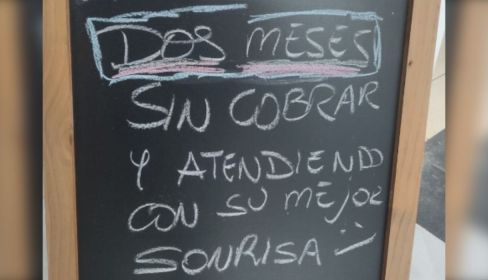 DOS MESES
SIN COBRAR
Y ATENDIENDO
CON SU MEJOR
SONRISA